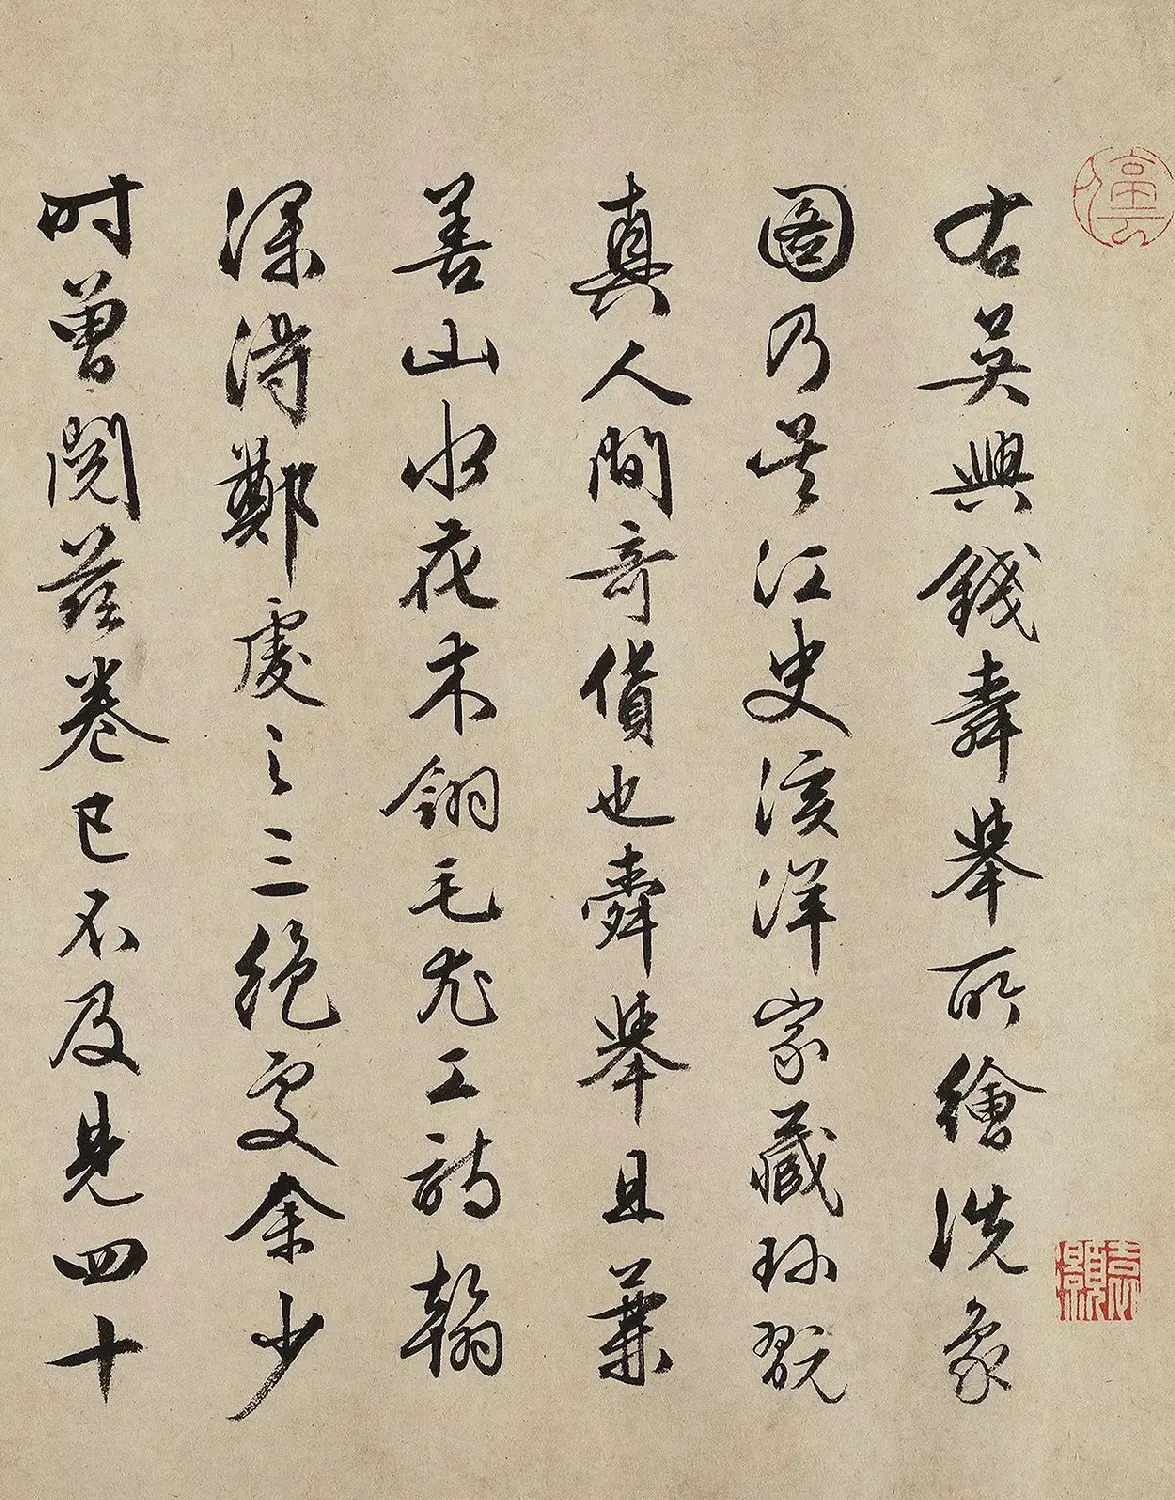 右吴興錢舜舉所繪洗象
圖乃吴江史溪洋家藏珍翫
真人間奇貨也舜舉且兼
善山水花木翎毛尤工詩翰
深得鄭虔之三絕處余少
时曾閱茲卷已不及見四十